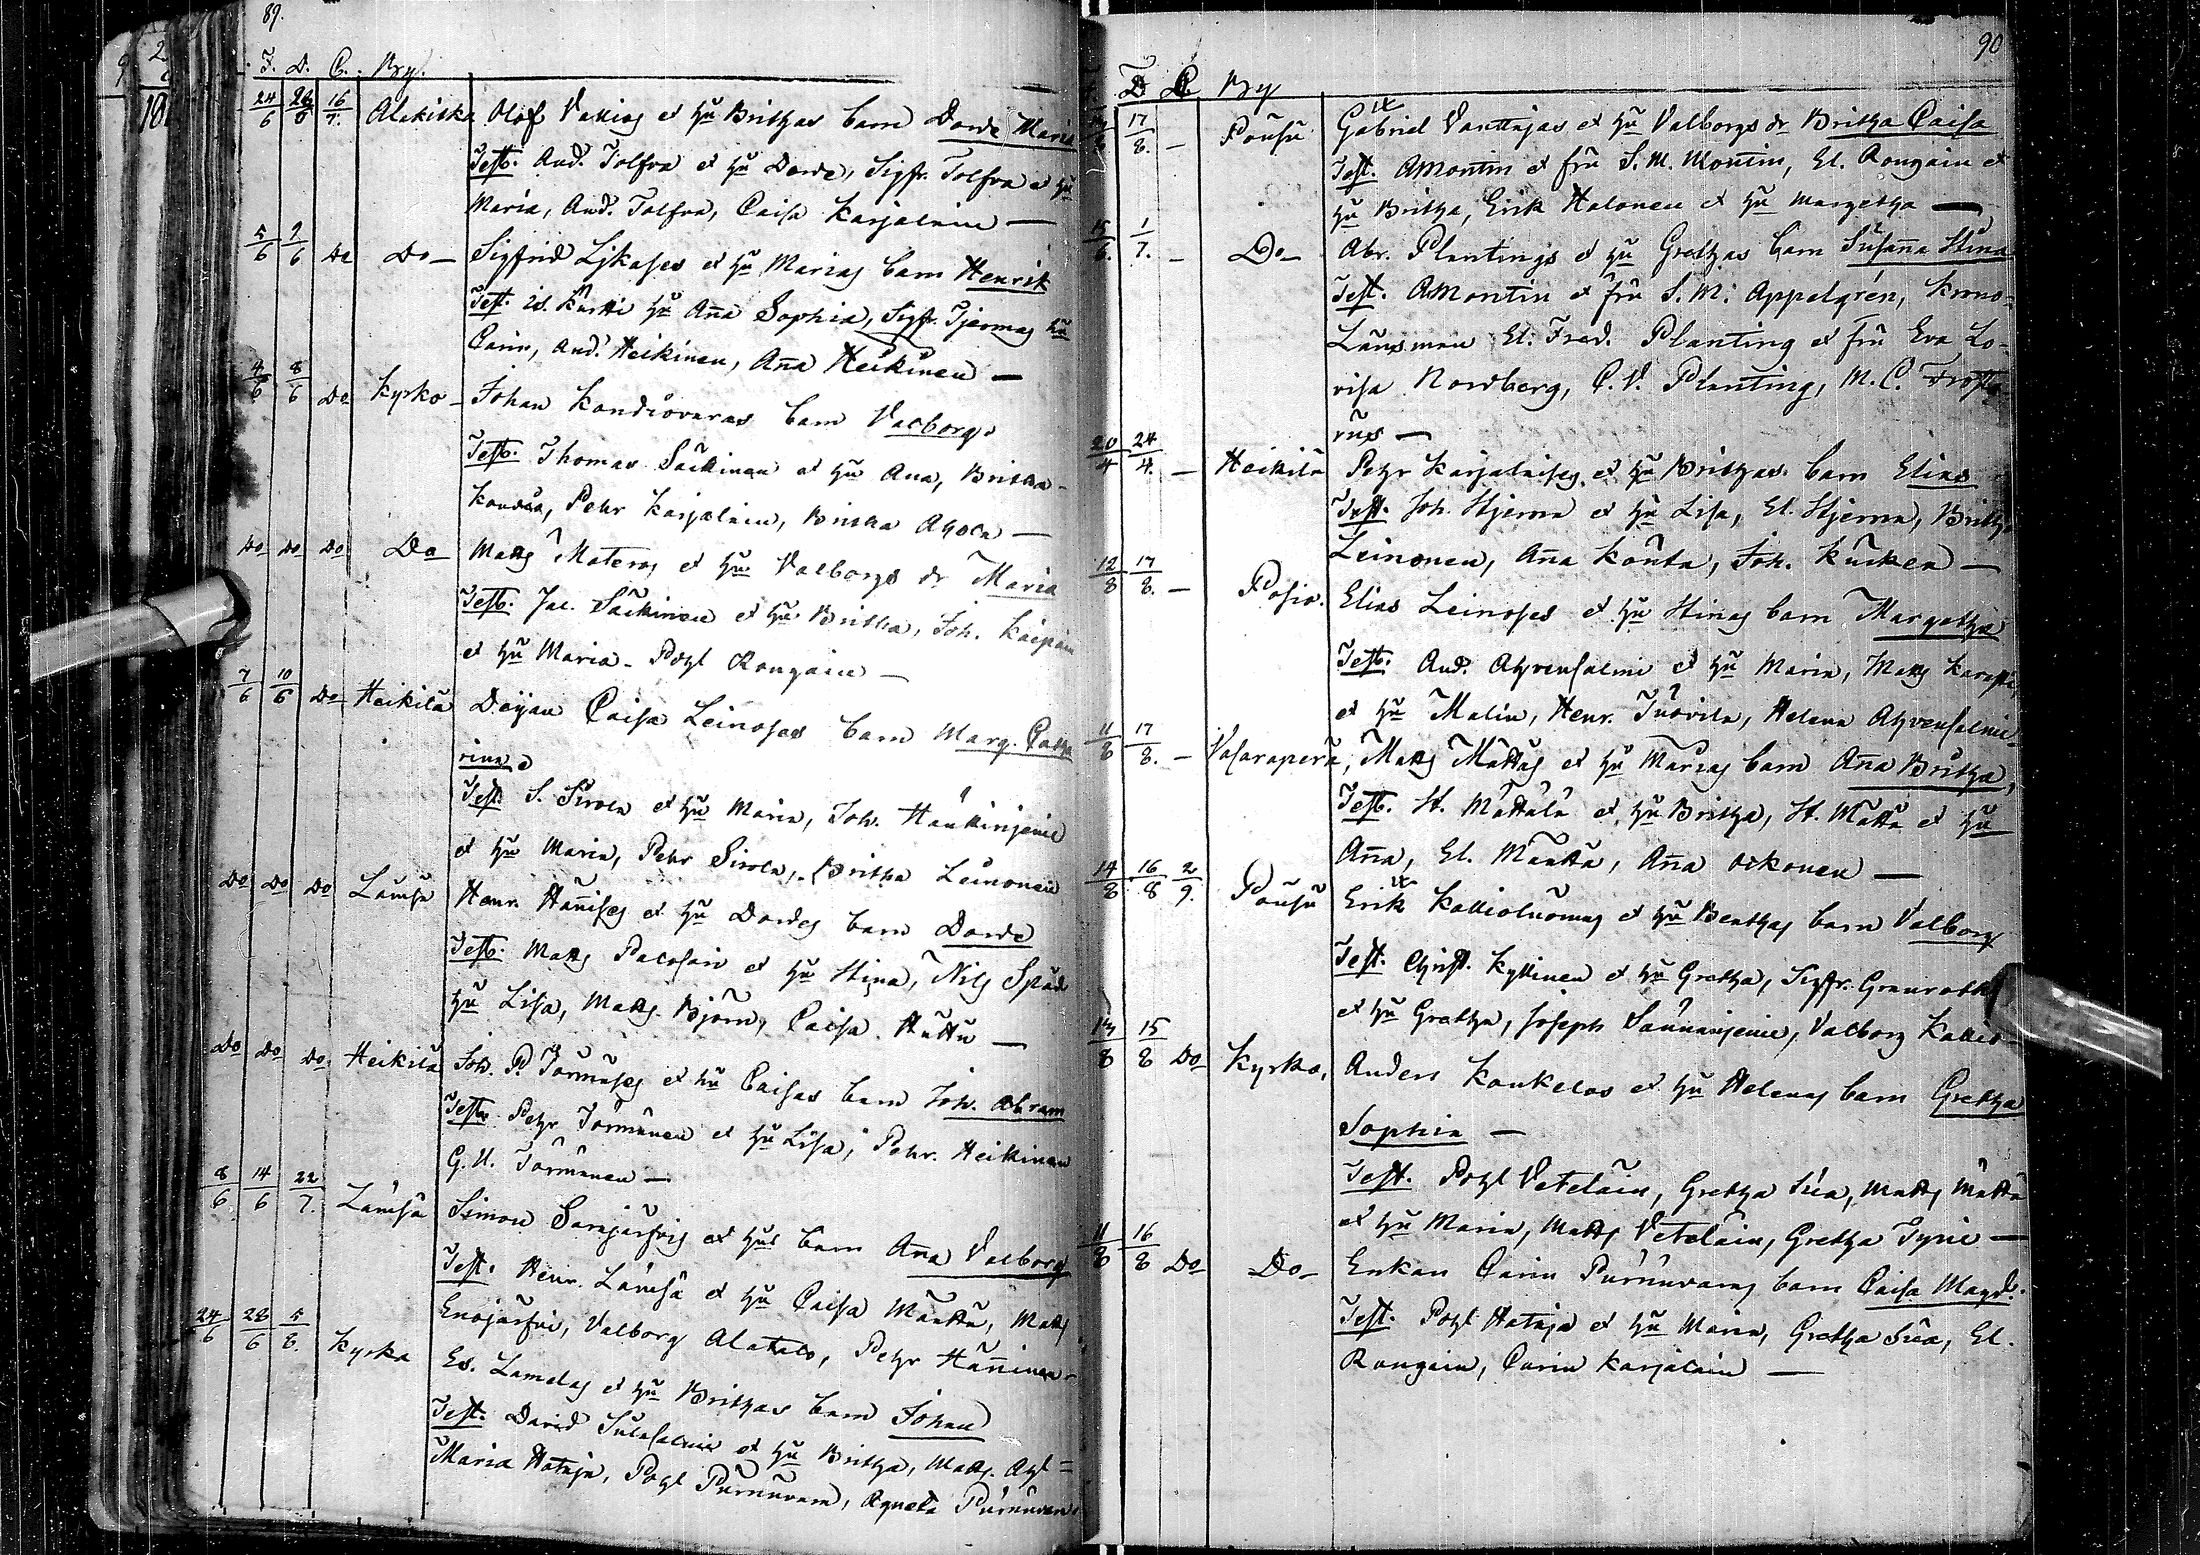 89.
F. D. C. By.
24/6 28/6 16/7. Alakitka Olof Vallias et hu Brithas barn Dorde Maria
Test. And. Tolfva et hu Dorde, Sigfr. Tolfva et hu
Maria, And. Tolfva, Caisa Karjalain —
5/6 9/6 Do Do — Sigfrid Lykases et hu Marias barn Henrik
Test. Kurtti hu Aña Sophia, Sigfr. Tjernas hu
Carin, And. Heikinen, Aña Heikinen —
4/6 8/6 Do Kyrko — Johan Kondiovaras barn Valborg.
Test. Thomas Säckinen et hu Ana, Britha
Pehr Karjalain, Britha Ahola —
Do Do Do Do Matts Materos et hu Valborgs dr Maria
Test. Jac. Säckinen et hu Britha, Joh.
et hu Maria — Pogl Rongain —
7/6 10/6 Do Heikilä Deijan Caisa Leinoses barn Marg. Catha
rina
Test. S. Sirola et hu Maria, Joh. Haukinjeme
et hu Maria, Pehr Sirola, Britha Leinonen
Do Do Do Lämsä Henr. Hañises et hu Dordes barn Dorde
Test. Matts Palosari et hu Stina, Nils
hu Lisa, Matts Björn, Caisa Huttu —
Do Do Do Heikilä Joh. P. Törmäses et hu Caisas barn Joh. Abram
Test. Pehr Törmänen et hu Lisa, Pehr. Heikinen
G. U. Törmänen —
8/6 14/6 22/7. Lämsä Simon Sarajärfvis et hus barn Aña Valborg
Test. Henr. Lämsä et hu Caisa Määttä, Matts
Enojärfvi, Valborg Alatalo, Pehr Häñinen
24/6 28/6 5/8. Kyrka Es. Lamelas et hu Brithas barn Johan
Test. David Sulasalmi et hu Britha, Matts
Maria Hataja, Pogl Purnuvara, Agneta Purnuvara
90
D C By
17/8. — Pousu Gabriel Vanttajas et hu Valborgs dr Britha Caisa
Test. A Montin et fru S. M. Montin, El. Rongain et
hu Britha, Erik Halonen et hu Margetha —
15/6. 1/7. — Do — Abr. Plantings et hu Grethas barn Susaña Stina
Test. A Montin et fru S. M. Appelgrén, Krono-
Länsman El. Fred. Planting et fru Eva Lo-
visa Nordberg, C. V. Planting, M. C. Froste-
rus —
20/4 24/4. — Heikilä Pehr Karjalaises et hu Brithas barn Elias
Test. Joh. Stjerna et hu Lisa, El. Stjerna, Britha
Leinonen, Aña Kouta, Joh.
12/8 17/8. — Posio. Elias Leinoses et hu Stinas barn Margetha
Test. And. Ahvensalmi et hu Maria, Matts
et hu Malin, Henr. Tuovila, Helena Ahvensalmi
11/8 17/8. — Vasaraperä, Matts Mattas et hu Marias barn Aña Britha,
Test. H. Määttälä et hu Britha, H. Määttä et hu
Aña, El. Määttä, Aña Ockonen —
14/8 16/8 2/9. Pousu Erik Kallioluomas et hu Berthas barn Valborg
Test. Christ. Kyllinen et hu Gretha, Sigfr. Granroth
et hu Gretha, Joseph Saunanjeme, Valborg Kallio
13/8 15/8 Do Kyrko. Anders Koukelos et hu Helenas barn Gretha
Sophia —
Test. Pogl Vetelain, Gretha Súa, Matts Mätta
et hu Maria, Matts Vetelain, Gretha Tyni —
11/8 16/8 Do Do — Enkan Carin Purnuvaras barn Caisa Magd.
Test. Pogl Hataja et hu Maria, Gretha Súa, El.
Rongain, Carin Karjalain —